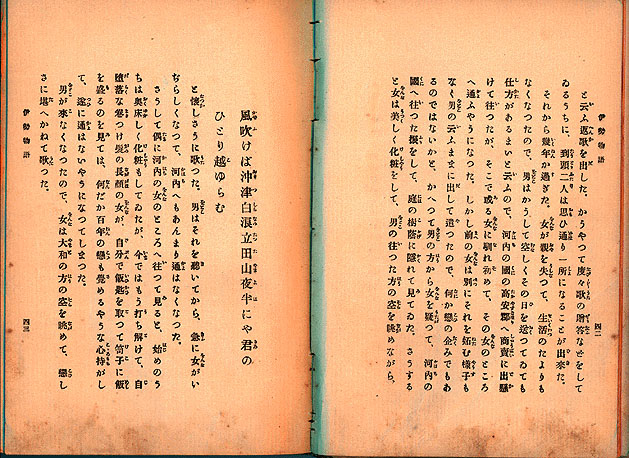 伊勢物語
四二
と云ふ返歌を出した。かうやつて度々歌の贈答などをして
ゐるうちに、到頭二人は思ひ通り一所になることが出來た。
それから幾年か過ぎた。女が親を失つて、生活のたよりも
なくなつたので、男はかうして空しくその日を送つてゐても
仕方があるまいと云ふので、河内の國の高安郡へ商賣に出懸
けて往つたが、そこで或る女に馴れ初めて、その女のところ
へ通ふやうになつた。しかし前の女は別にそれを妬む樣子も
なく男の云ふままに出して遣つたので、何か戀の企みでもあ
るのではないかと、かへつて男の方から女を疑つて、河内の
國へ往つた振をして、庭の樹蔭に隱れて見てゐた。さうする
と女は美しく化粧をして、男の往つた方の空を眺めながら、
風吹けば沖津白浪立田山夜半にや君の
ひとり越ゆらむ
と懷しさうに歌つた。男はそれを聽いてから、急に女がい
ぢらしくなつて、河内へもあんまり通はなくなつた。
さうして偶に河内の女のところへ往つて見ると、始めのう
ちは奥床しく化粧もしてゐたが、今ではもう打ち解けて、自
墮落な卷つけ髮の長顏の女が、自分で飯匙を取つて笥子に飯
を盛るのを見ては、何だか百年の戀も覺めるやうな心持がし
て、遂に通はないやうになつてしまつた。
男が來なくなつたので、女は大和の方の空を眺めて、戀し
さに堪へかねて歌つた。
伊勢物語
四三